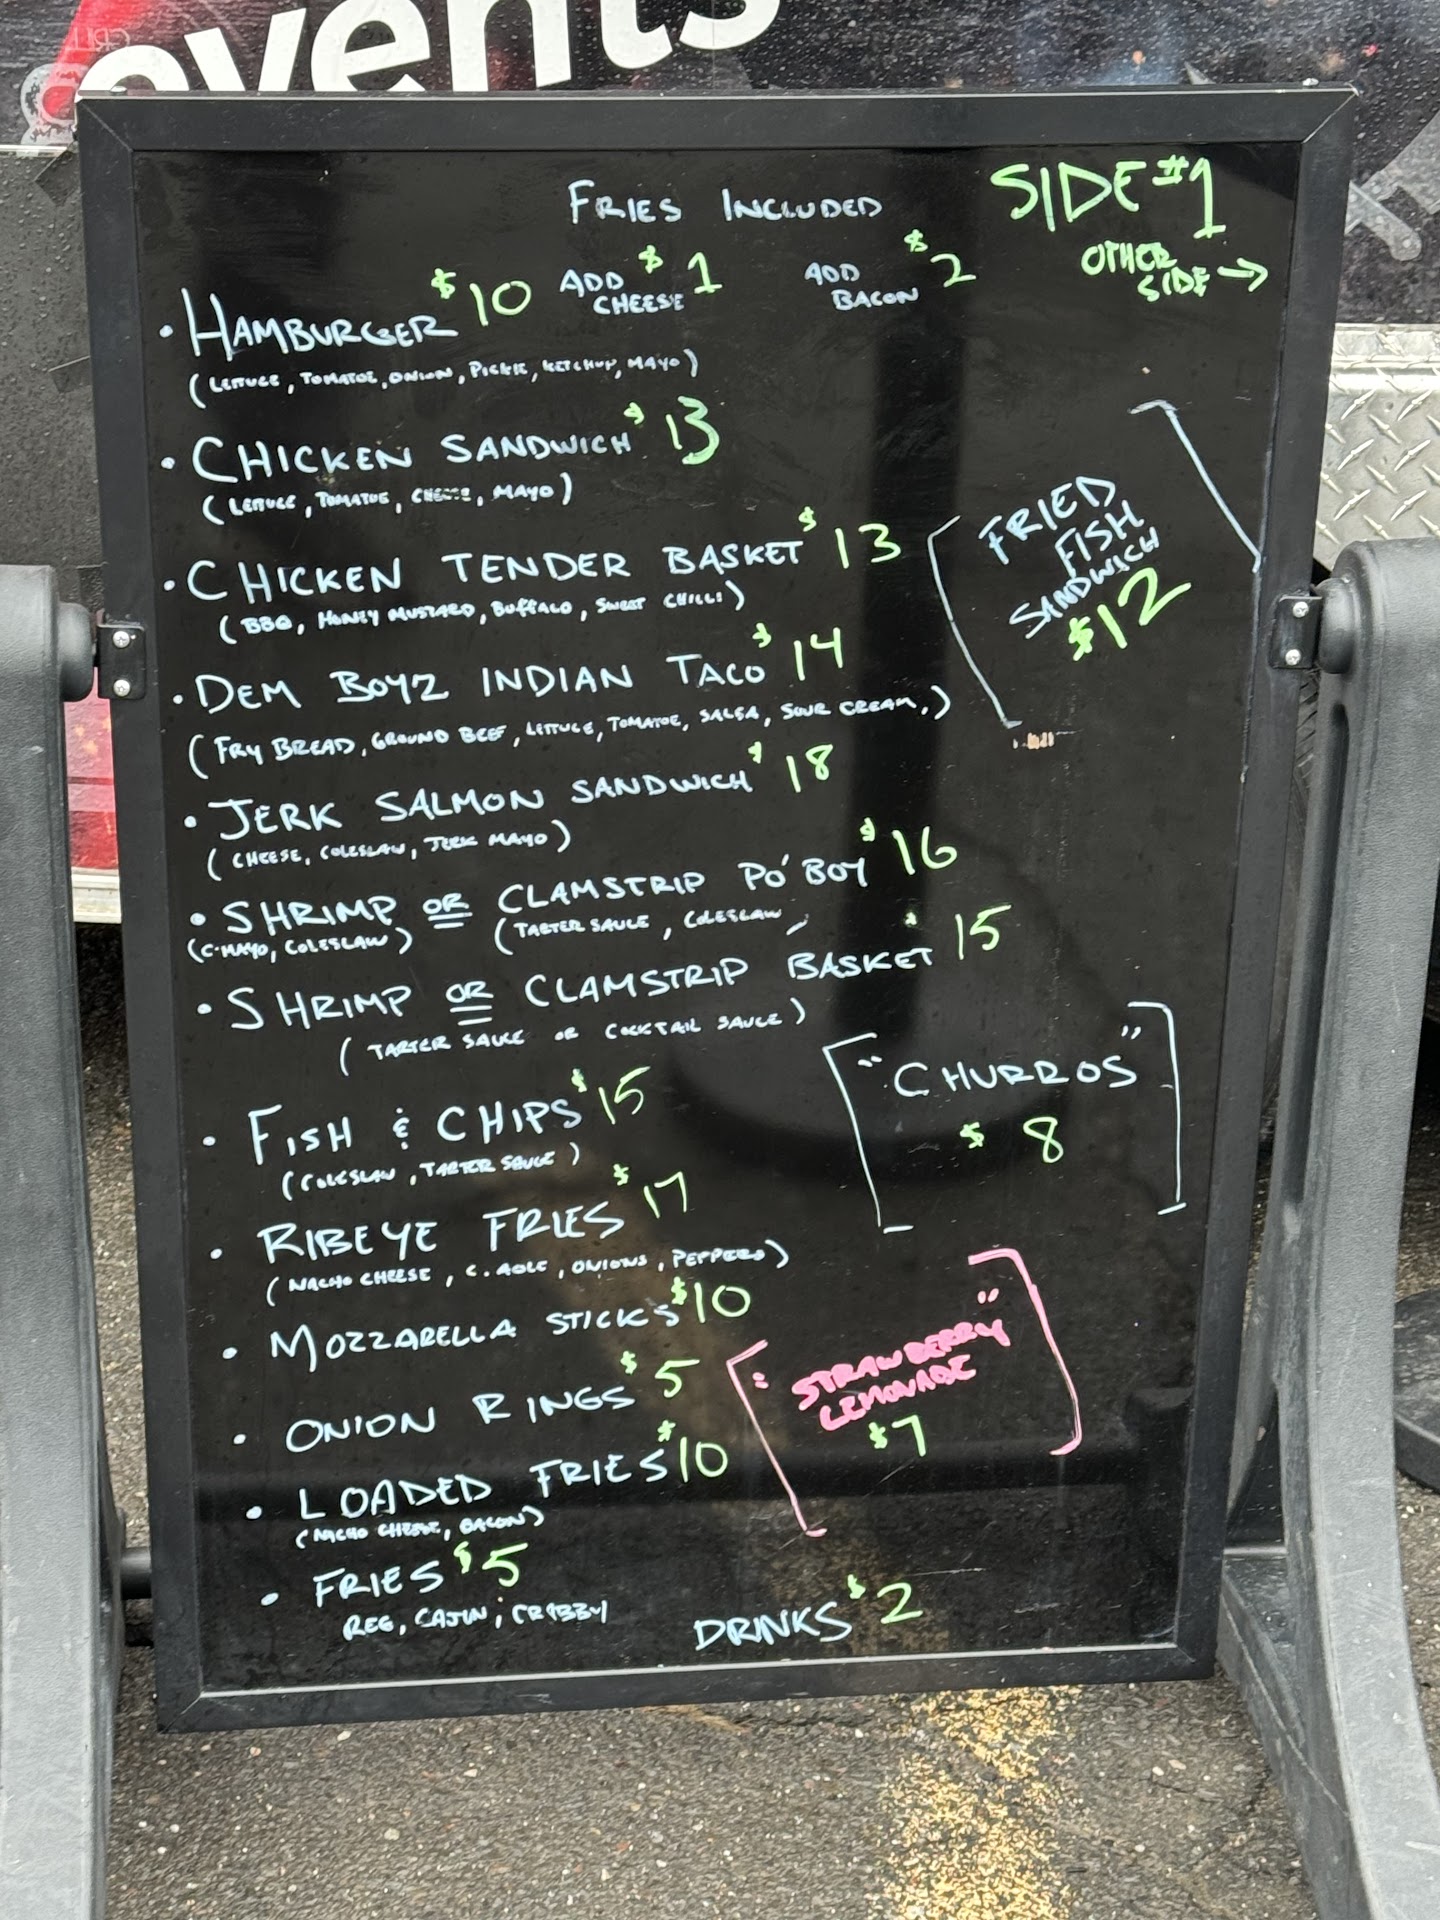 events
FRIES INCLUDED
SIDE #1
OTHER SIDE →
• HAMBURGER $10 ADD CHEESE $1 ADD BACON $2
(LETTUCE, TOMATOE, ONION, PICKLE, KETCHUP, MAYO)
• CHICKEN SANDWICH $13
(LETTUCE, TOMATOE, CHEESE, MAYO)
• CHICKEN TENDER BASKET $13
(BBQ, HONEY MUSTARD, BUFFALO, SWEET CHILLI)
FRIED
FISH
SANDWICH
$12
• DEM BOYZ INDIAN TACO $14
(FRY BREAD, GROUND BEEF, LETTUCE, TOMATOE, SALSA, SOUR CREAM,)
• JERK SALMON SANDWICH $18
(CHEESE, COLESLAW, JERK MAYO)
• SHRIMP OR CLAMSTRIP PO'BOY $16
(C-MAYO, COLESLAW) (TARTER SAUCE, COLESLAW)
• SHRIMP OR CLAMSTRIP BASKET $15
(TARTER SAUCE OR COCKTAIL SAUCE)
"CHURROS"
$8
• FISH & CHIPS $15
(COLESLAW, TARTER SAUCE)
• RIBEYE FRIES $17
(NACHO CHEESE, C. AOLE, ONIONS, PEPPERS)
• MOZZARELLA STICKS $10
"STRAWBERRY"
LEMONADE
$7
• ONION RINGS $5
• LOADED FRIES $10
(NACHO CHEESE, BACON)
• FRIES $5
REG, CAJUN, CRABBY
DRINKS $2